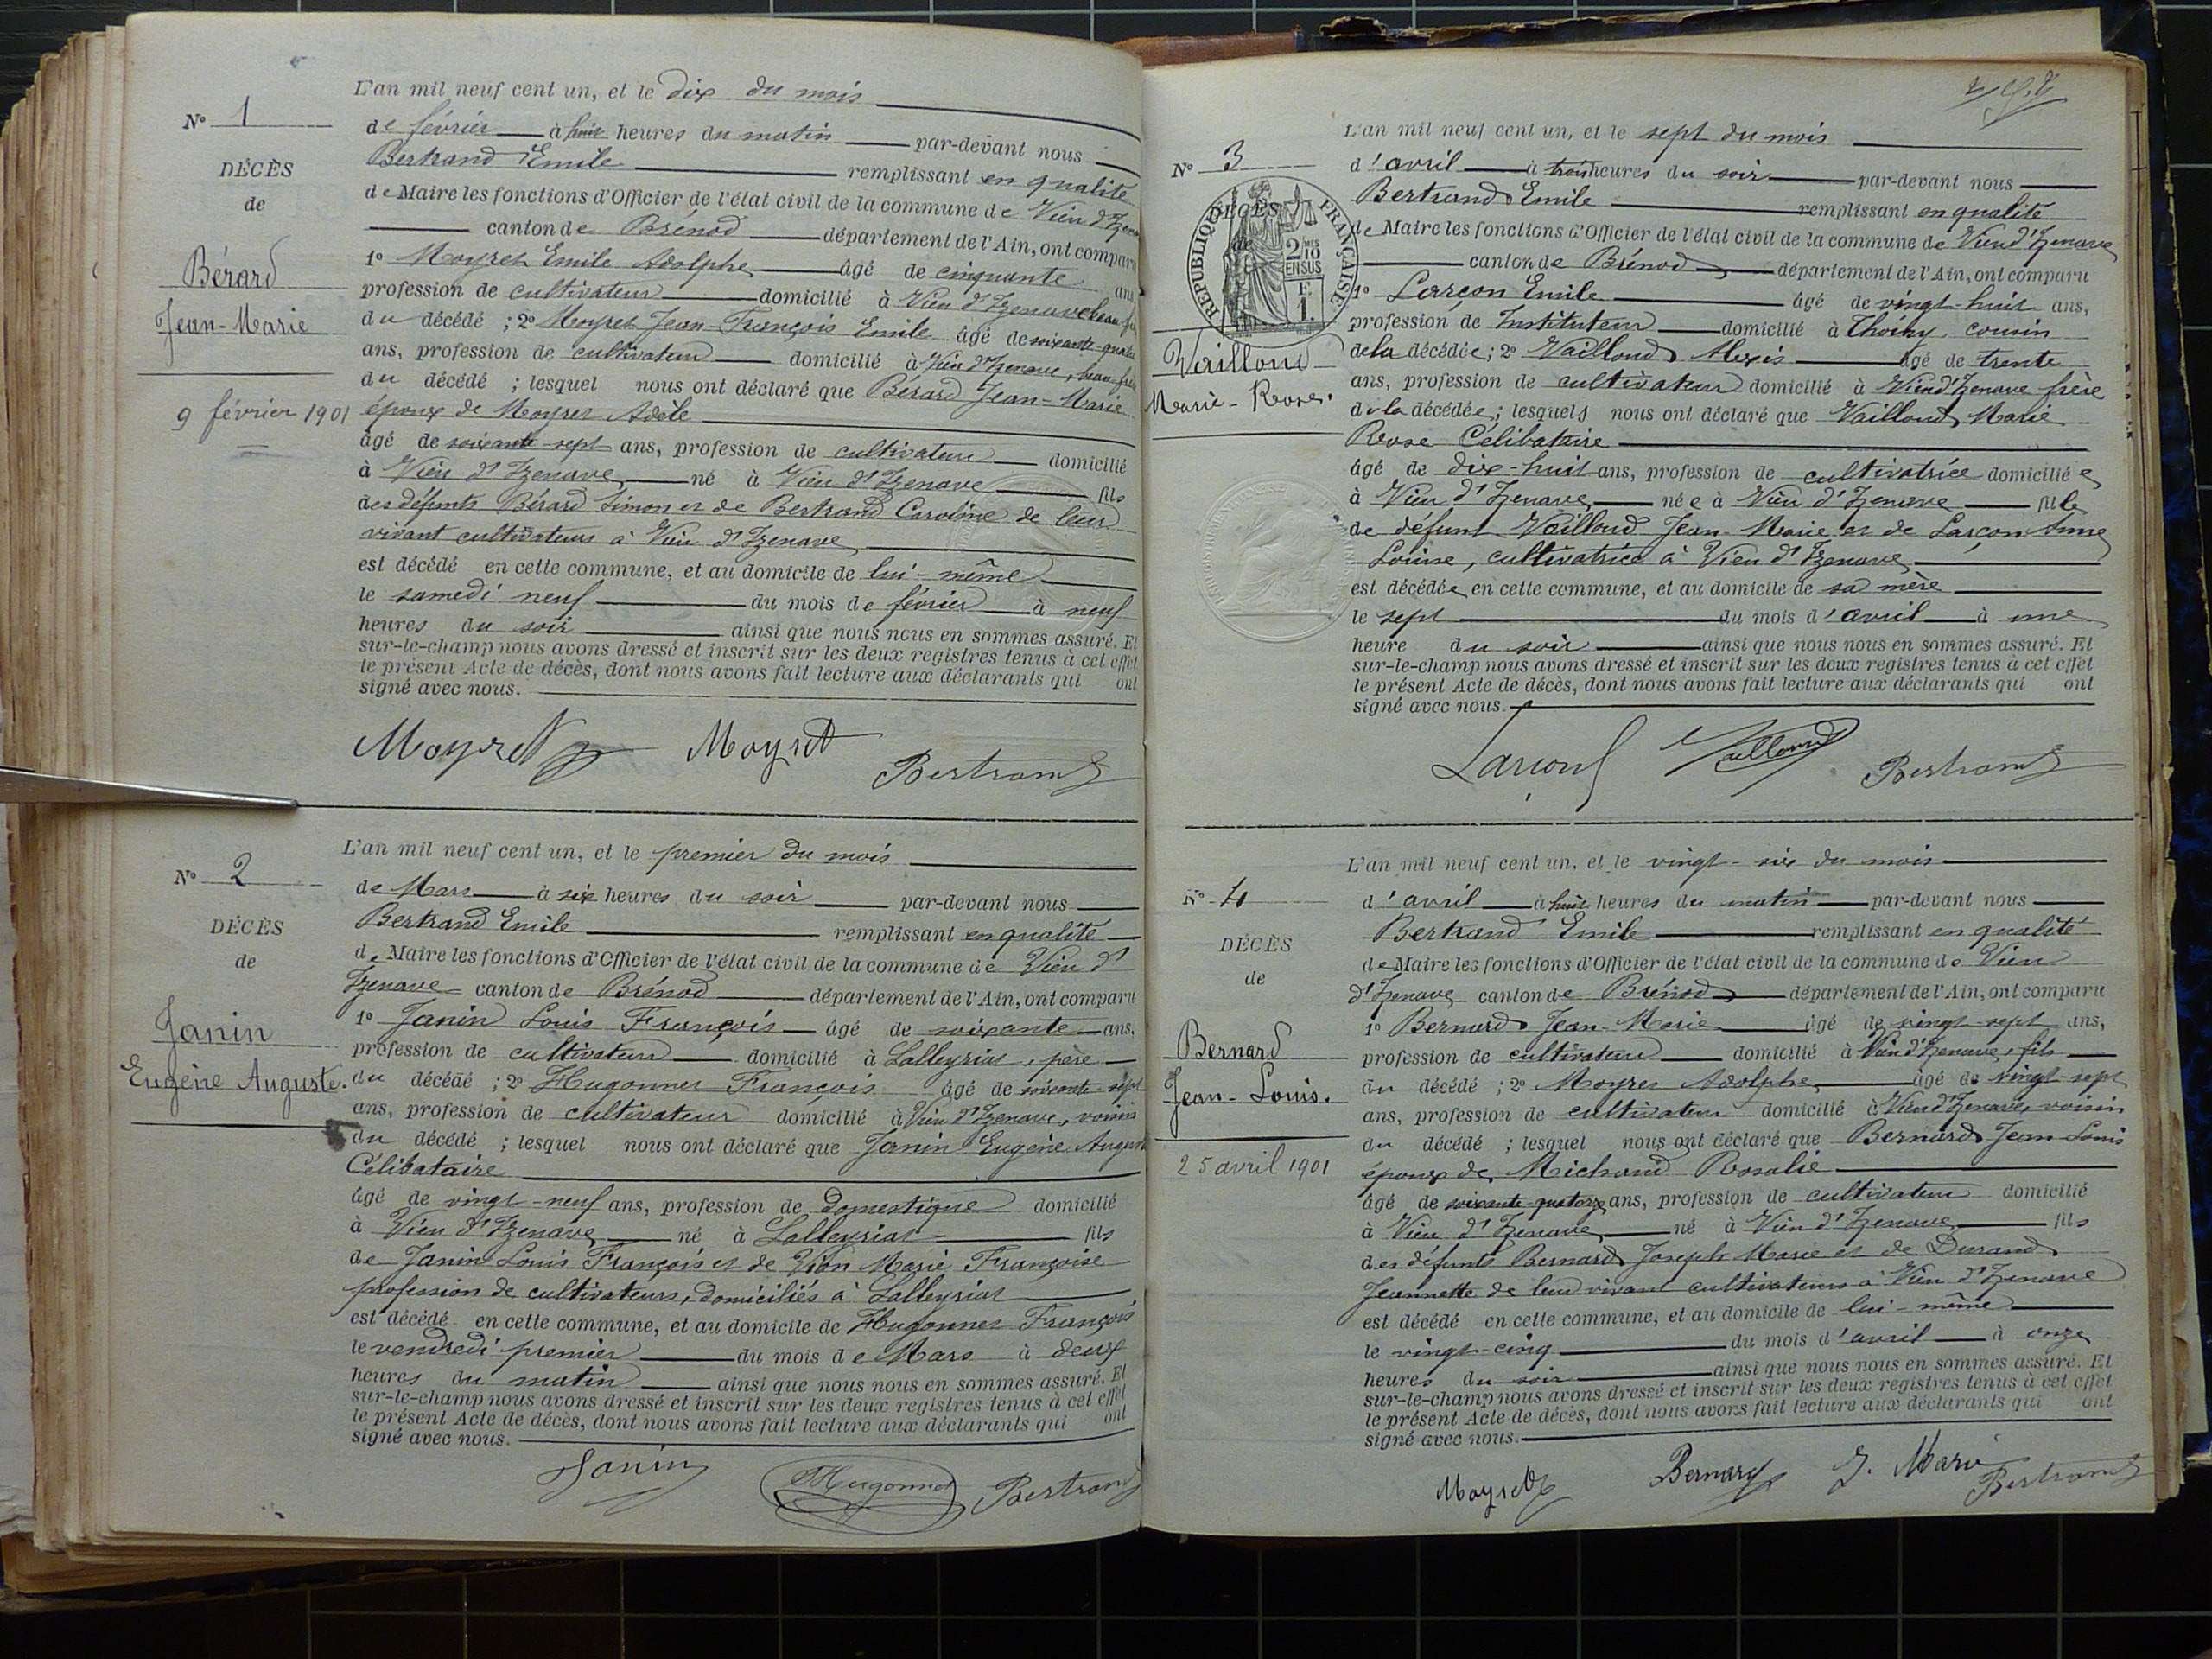 N° 1
DÉCÈS
de
Bérard
Jean-Marie
9 février 1901
L'an mil neuf cent un, et le dix du mois
de février à huit heures du matin par-devant nous
Bertrand Emile remplissant en qualité
de Maire les fonctions d'Officier de l'état civil de la commune de Vieu d'Izenave
canton de Brénod département de l'Ain, ont comparu
1° Moyret Emile Adolphe âgé de cinquante ans
profession de cultivateur domicilié à Vieu d'Izenave beau-frère
du décédé ; 2° Moyret Jean-François Emile âgé de soixante-quatre
ans, profession de cultivateur domicilié à Vieu d'Izenave, beau-frère
du décédé ; lesquel nous ont déclaré que Bérard Jean-Marie
époux de Moyret Adèle
âgé de soixante-sept ans, profession de cultivateur domicilié
à Vieu d'Izenave né à Vieu d'Izenave fils
des défunts Bérard Simon et de Bertrand Caroline de leur
vivant cultivateurs à Vieu d'Izenave
est décédé en cette commune, et au domicile de lui-même
le samedi neuf du mois de février à neuf
heures du soir ainsi que nous nous en sommes assuré. Et
sur-le-champ nous avons dressé et inscrit sur les deux registres tenus à cet effet
le présent Acte de décès, dont nous avons fait lecture aux déclarants qui ont
signé avec nous.
Moyret Moyret Bertrand
N° 2
DÉCÈS
de
Janin
Eugène Auguste.
L'an mil neuf cent un, et le premier du mois
de Mars à six heures du soir par-devant nous
Bertrand Emile remplissant en qualité
de Maire les fonctions d'Officier de l'état civil de la commune de Vieu d'
Izenave canton de Brénod département de l'Ain, ont comparu
1° Janin Louis François âgé de soixante ans,
profession de cultivateur domicilié à Lalleyriat, père
du décédé ; 2° Hugonnet François âgé de soixante-sept
ans, profession de cultivateur domicilié à Vieu d'Izenave, voisin
du décédé ; lesquel nous ont déclaré que Janin Eugène Auguste
Célibataire
âgé de vingt-neuf ans, profession de Domestique domicilié
à Vieu d'Izenave né à Lalleyriat fils
de Janin Louis François et de Vion Marie Françoise
profession de cultivateurs, domiciliés à Lalleyriat
est décédé en cette commune, et au domicile de Hugonnet François
le vendredi premier du mois de Mars à deux
heures du matin ainsi que nous nous en sommes assuré. Et
sur-le-champ nous avons dressé et inscrit sur les deux registres tenus à cet effet
le présent Acte de décès, dont nous avons fait lecture aux déclarants qui ont
signé avec nous.
Janin Hugonnet Bertrand
N° 3
DÉCÈS
de
RÉPUBLIQUE FRANÇAISE
2/10 EN SUS
F. 1.
Vailloud
Marie-Rose.
L'an mil neuf cent un, et le sept du mois
d'avril à trois heures du soir par-devant nous
Bertrand Emile remplissant en qualité
de Maire les fonctions d'Officier de l'état civil de la commune de Vieu d'Izenave
canton de Brénod département de l'Ain, ont comparu
1° Larçon Emile âgé de vingt-huit ans,
profession de Instituteur domicilié à Thoiry, cousin
de la décédée ; 2° Vailloud Alexis âgé de trente
ans, profession de cultivateur domicilié à Vieu d'Izenave frère
de la décédée ; lesquels nous ont déclaré que Vailloud Marie
Rose Célibataire
âgé de dix-huit ans, profession de cultivatrice domiciliée
à Vieu d'Izenave née à Vieu d'Izenave fille
de défunt Vailloud Jean-Marie et de Larçon Anne
Louise, cultivatrice à Vieu d'Izenave
est décédée en cette commune, et au domicile de sa mère
le sept du mois d'avril à une
heure du soir ainsi que nous nous en sommes assuré. Et
sur-le-champ nous avons dressé et inscrit sur les deux registres tenus à cet effet
le présent Acte de décès, dont nous avons fait lecture aux déclarants qui ont
signé avec nous.
Larçon Vailloud Bertrand
N° 4
DÉCÈS
de
Bernard
Jean-Louis.
25 avril 1901
L'an mil neuf cent un, et le vingt-six du mois
d'avril à huit heures du matin par-devant nous
Bertrand Emile remplissant en qualité
de Maire les fonctions d'Officier de l'état civil de la commune de Vieu
d'Izenave canton de Brénod département de l'Ain, ont comparu
1° Bernard Jean-Marie âgé de vingt-sept ans,
profession de cultivateur domicilié à Vieu d'Izenave, fils
du décédé ; 2° Moyret Adolphe âgé de vingt-sept
ans, profession de cultivateur domicilié à Vieu d'Izenave, voisin
du décédé ; lesquel nous ont déclaré que Bernard Jean-Louis
époux de Michaud Rosalie
âgé de soixante-quatorze ans, profession de cultivateur domicilié
à Vieu d'Izenave né à Vieu d'Izenave fils
des défunts Bernard Joseph Marie et de Durand
Jeannette de leur vivant cultivateurs à Vieu d'Izenave
est décédé en cette commune, et au domicile de lui-même
le vingt-cinq du mois d'avril à onze
heures du soir ainsi que nous nous en sommes assuré. Et
sur-le-champ nous avons dressé et inscrit sur les deux registres tenus à cet effet
le présent Acte de décès, dont nous avons fait lecture aux déclarants qui ont
signé avec nous.
Moyret Bernard J. Marie Bertrand